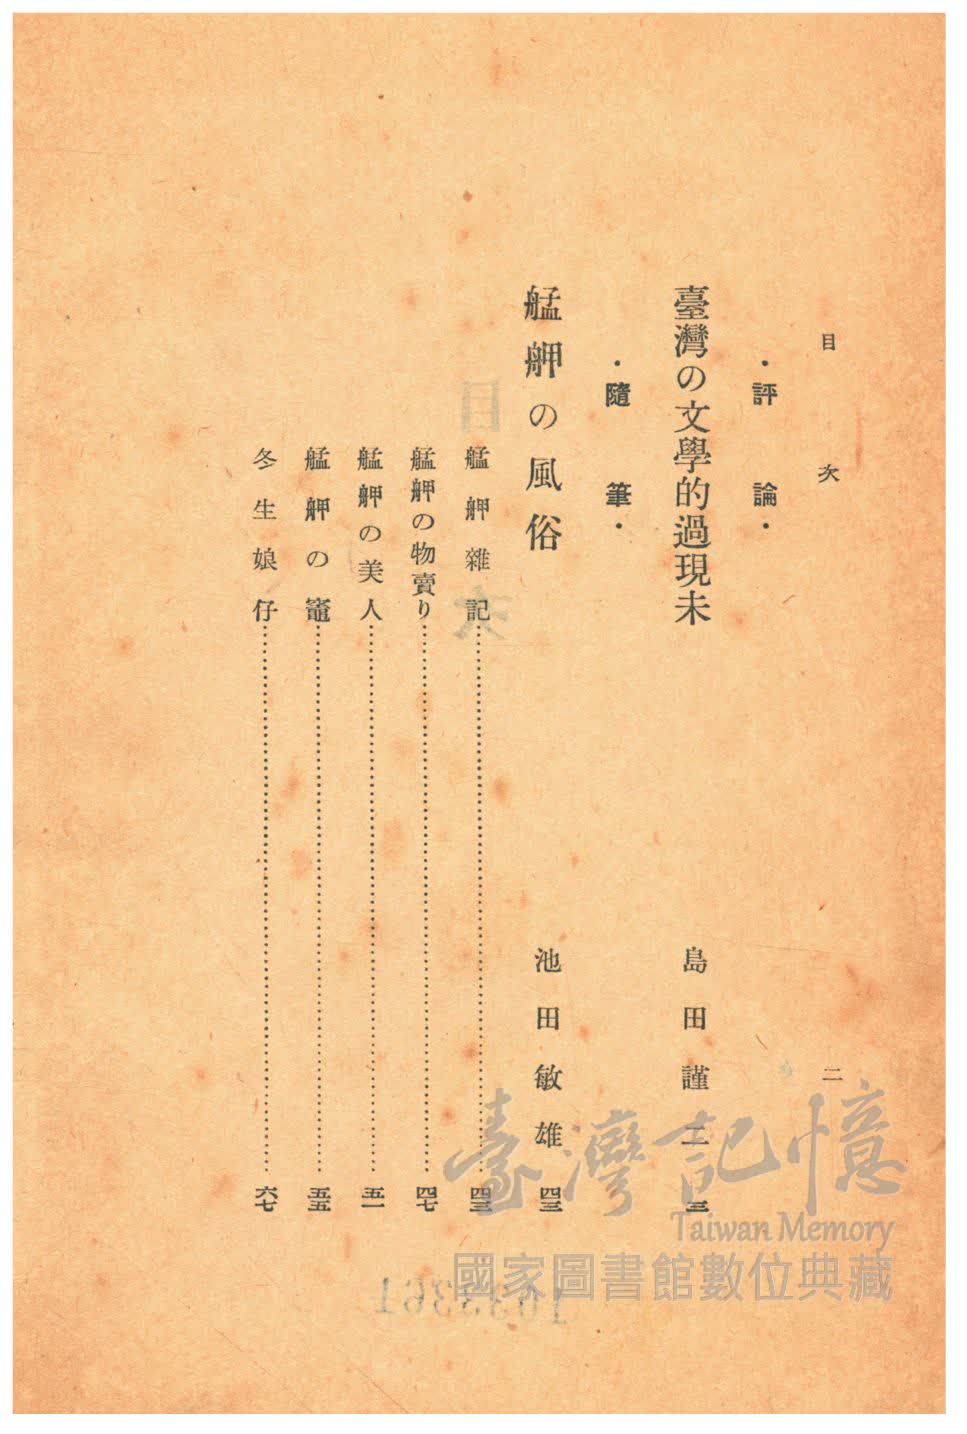 目次 二
・評論・
臺灣の文學的過現未 島田謹二 三
・隨筆・
艋舺の風俗 池田敏雄 四三
艋舺雜記……四三
艋舺の物賣り……四七
艋舺の美人……五一
艋舺の竈……五五
冬生娘仔……六七
臺灣記憶
Taiwan Memory
國家圖書館數位典藏